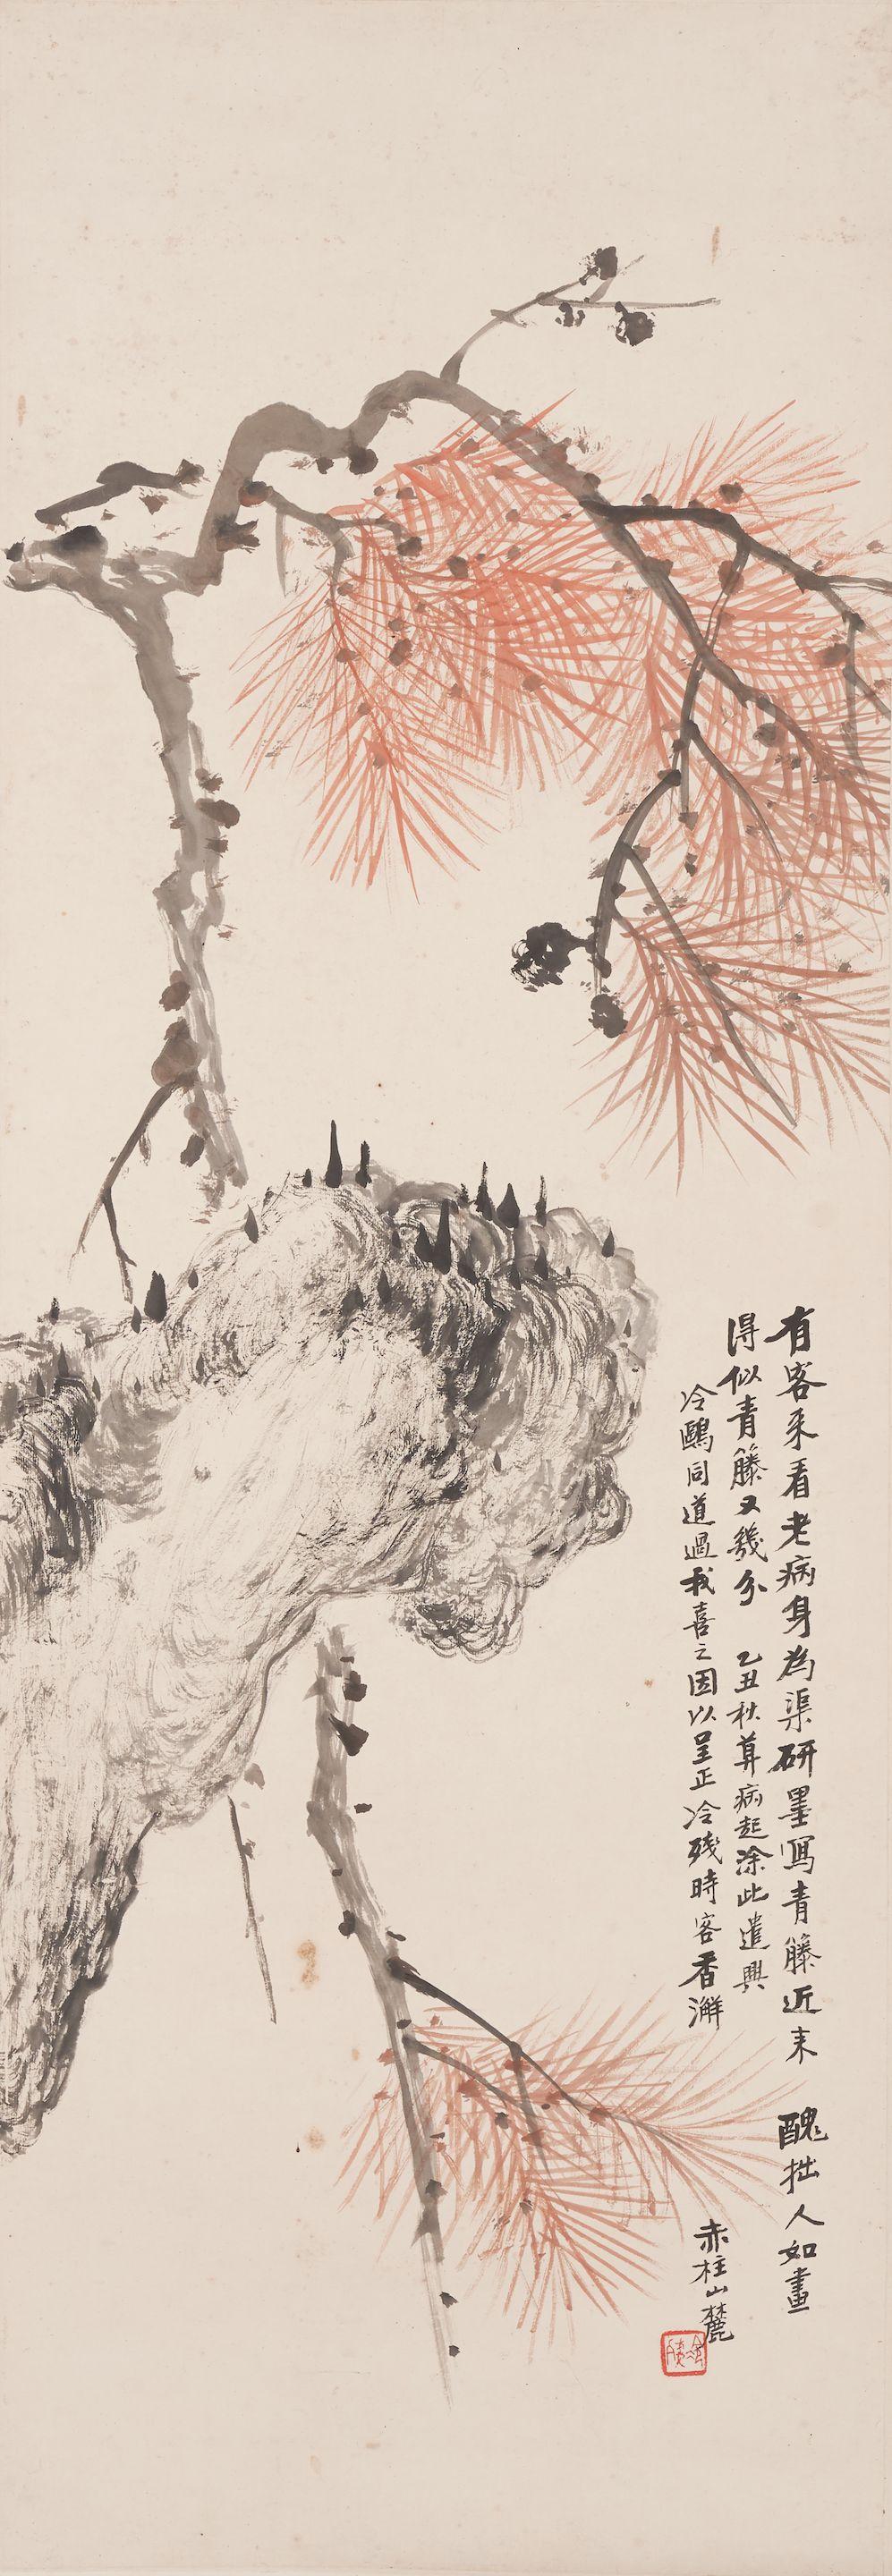 有客来看老病身為渠研墨寫青籐近来醜拙人如畫
得似青籐又幾分 乙丑秋算病起涂此遣興
冷鷗同道過我喜之因以呈正冷殘時客香澥
赤柱山麓